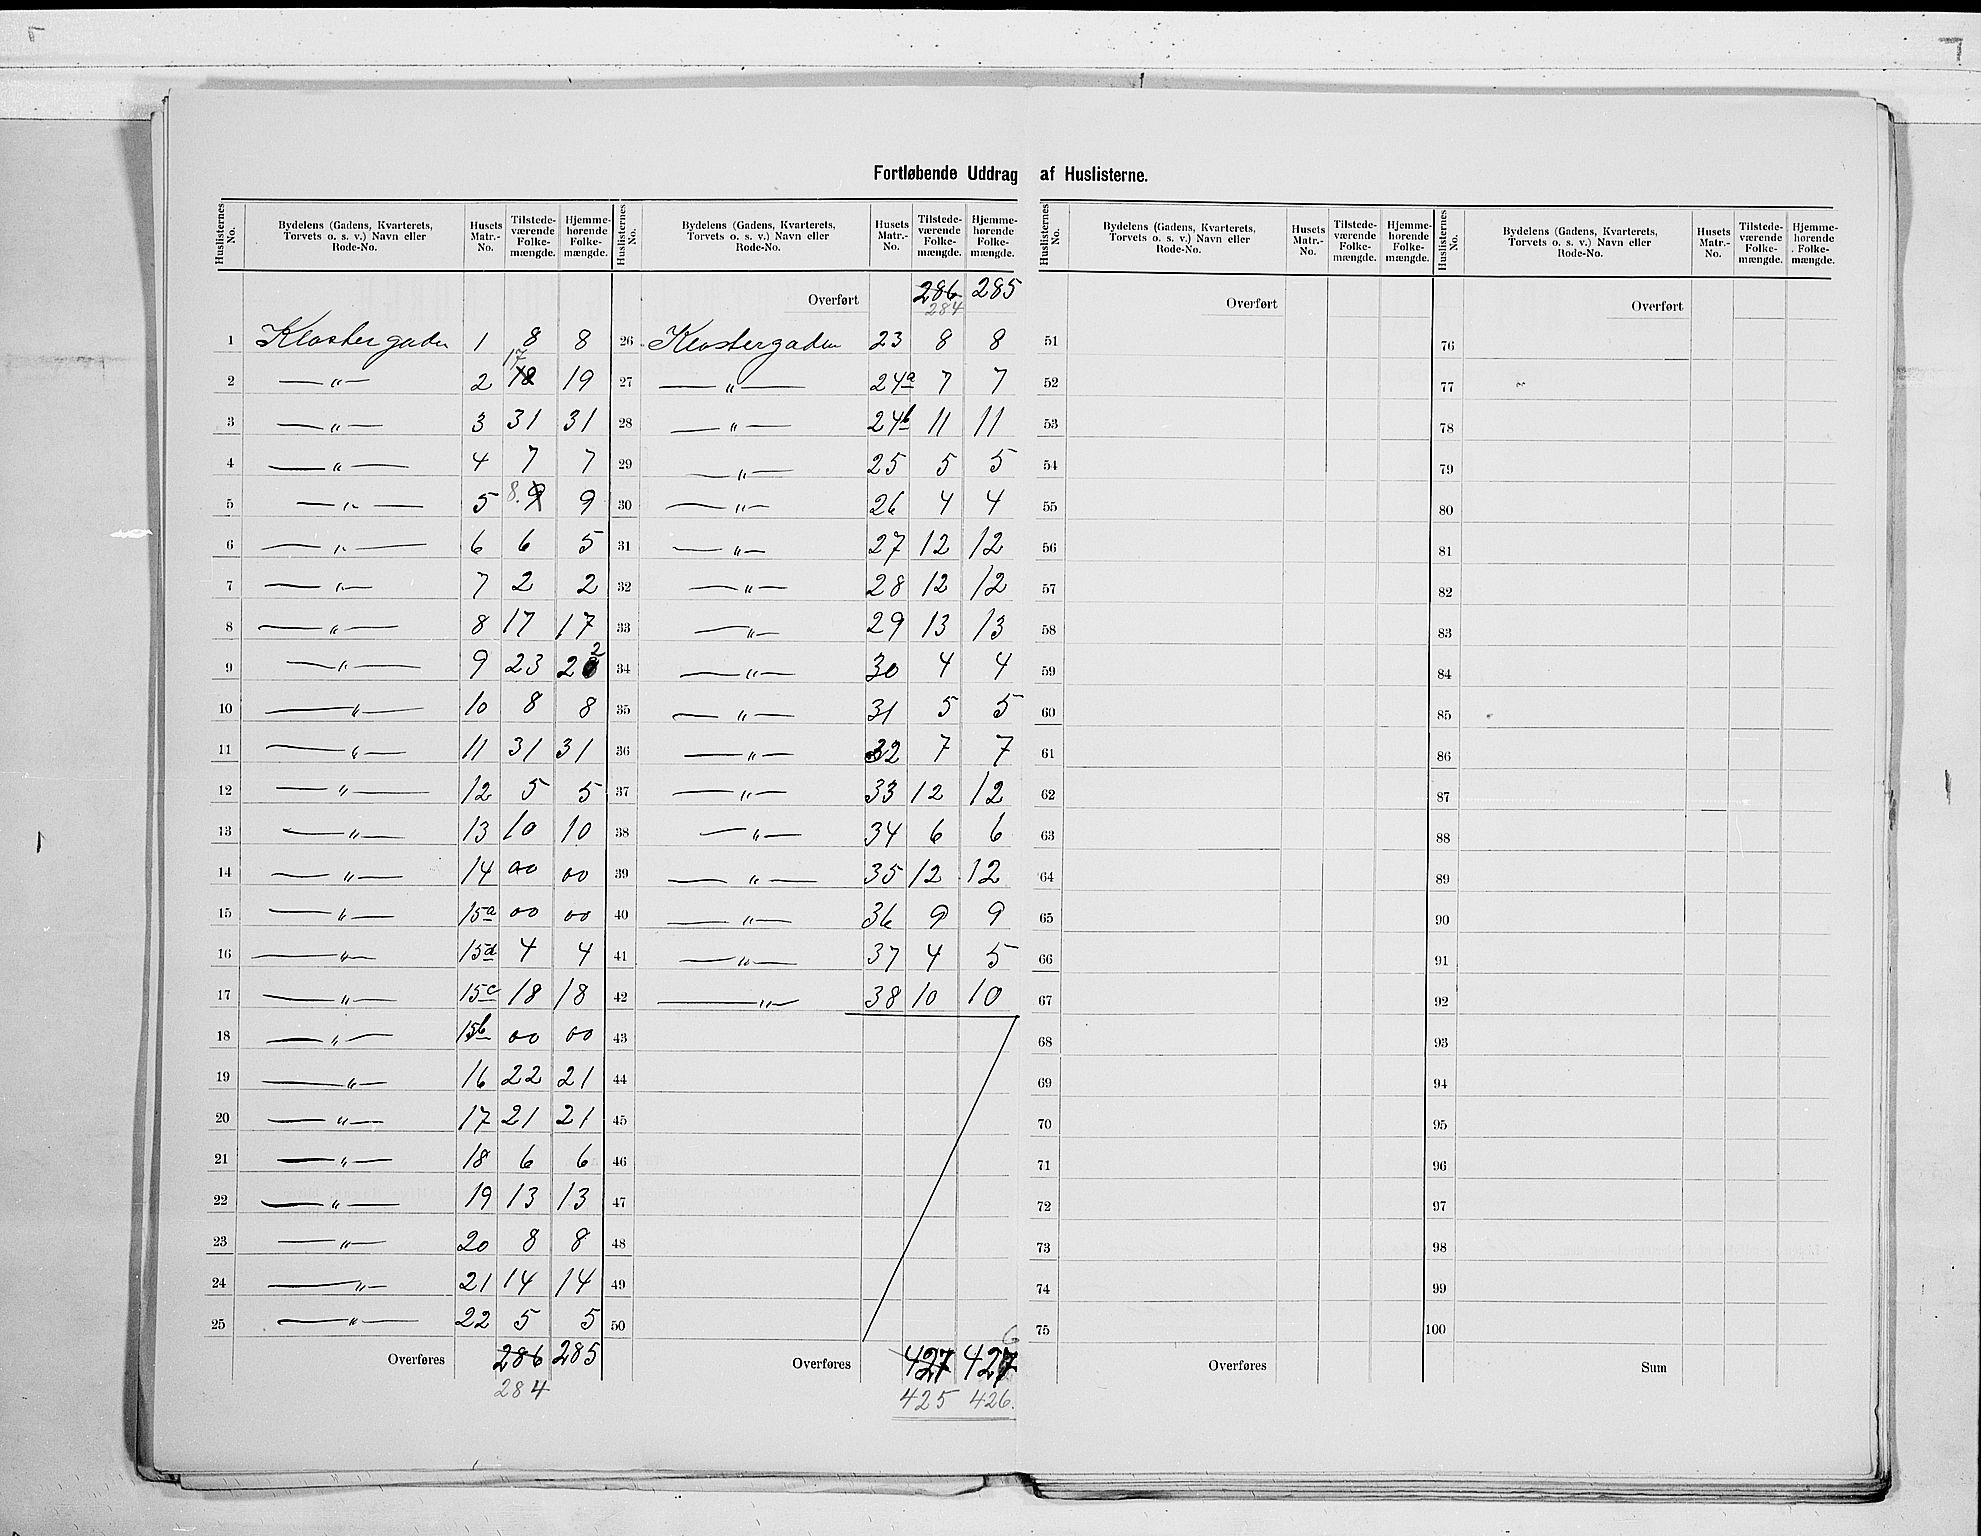 Fortløbende Uddrag af Huslisterne.
Huslisternes No. | Bydelens (Gadens, Kvarterets, Torvets o. s. v.) Navn eller Rode-No. | Husets Matr.-No. | Tilstedeværende Folkemængde. | Hjemmehørende Folkemængde.
1 Klostergaden 1 8 8
2 —"— 2 17 18 19
3 —"— 3 31 31
4 —"— 4 7 7
5 —"— 5 8. 9 9
6 —"— 6 6 5
7 —"— 7 2 2
8 —"— 8 17 17
9 —"— 9 23 22
10 —"— 10 8 8
11 —"— 11 31 31
12 —"— 12 5 5
13 —"— 13 10 10
14 —"— 14 00 00
15 —"— 15a 00 00
16 —"— 15d 4 4
17 —"— 15c 18 18
18 —"— 15b 00 00
19 —"— 16 22 21
20 —"— 17 21 21
21 —"— 18 6 6
22 —"— 19 13 13
23 —"— 20 8 8
24 —"— 21 14 14
25 —"— 22 5 5
Overføres 286 285
284
Huslisternes No. | Bydelens (Gadens, Kvarterets, Torvets o. s. v.) Navn eller Rode-No. | Husets Matr.-No. | Tilstedeværende Folkemængde. | Hjemmehørende Folkemængde.
Overført 286 285
284
26 Klostergaden 23 8 8
27 —"— 24a 7 7
28 —"— 24b 11 11
29 —"— 25 5 5
30 —"— 26 4 4
31 —"— 27 12 12
32 —"— 28 12 12
33 —"— 29 13 13
34 —"— 30 4 4
35 —"— 31 5 5
36 —"— 32 7 7
37 —"— 33 12 12
38 —"— 34 6 6
39 —"— 35 12 12
40 —"— 36 9 9
41 —"— 37 4 5
42 —"— 38 10 10
43
44
45
46
47
48
49
50
Overføres 427 427
6
425 426.
Huslisternes No. | Bydelens (Gadens, Kvarterets, Torvets o. s. v.) Navn eller Rode-No. | Husets Matr.-No. | Tilstedeværende Folkemængde. | Hjemmehørende Folkemængde.
Overført
51
52
53
54
55
56
57
58
59
60
61
62
63
64
65
66
67
68
69
70
71
72
73
74
75
Overføres
Huslisternes No. | Bydelens (Gadens, Kvarterets, Torvets o. s. v.) Navn eller Rode-No. | Husets Matr.-No. | Tilstedeværende Folkemængde. | Hjemmehørende Folkemængde.
Overført
76
77
78
79
80
81
82
83
84
85
86
87
88
89
90
91
92
93
94
95
96
97
98
99
100
Sum